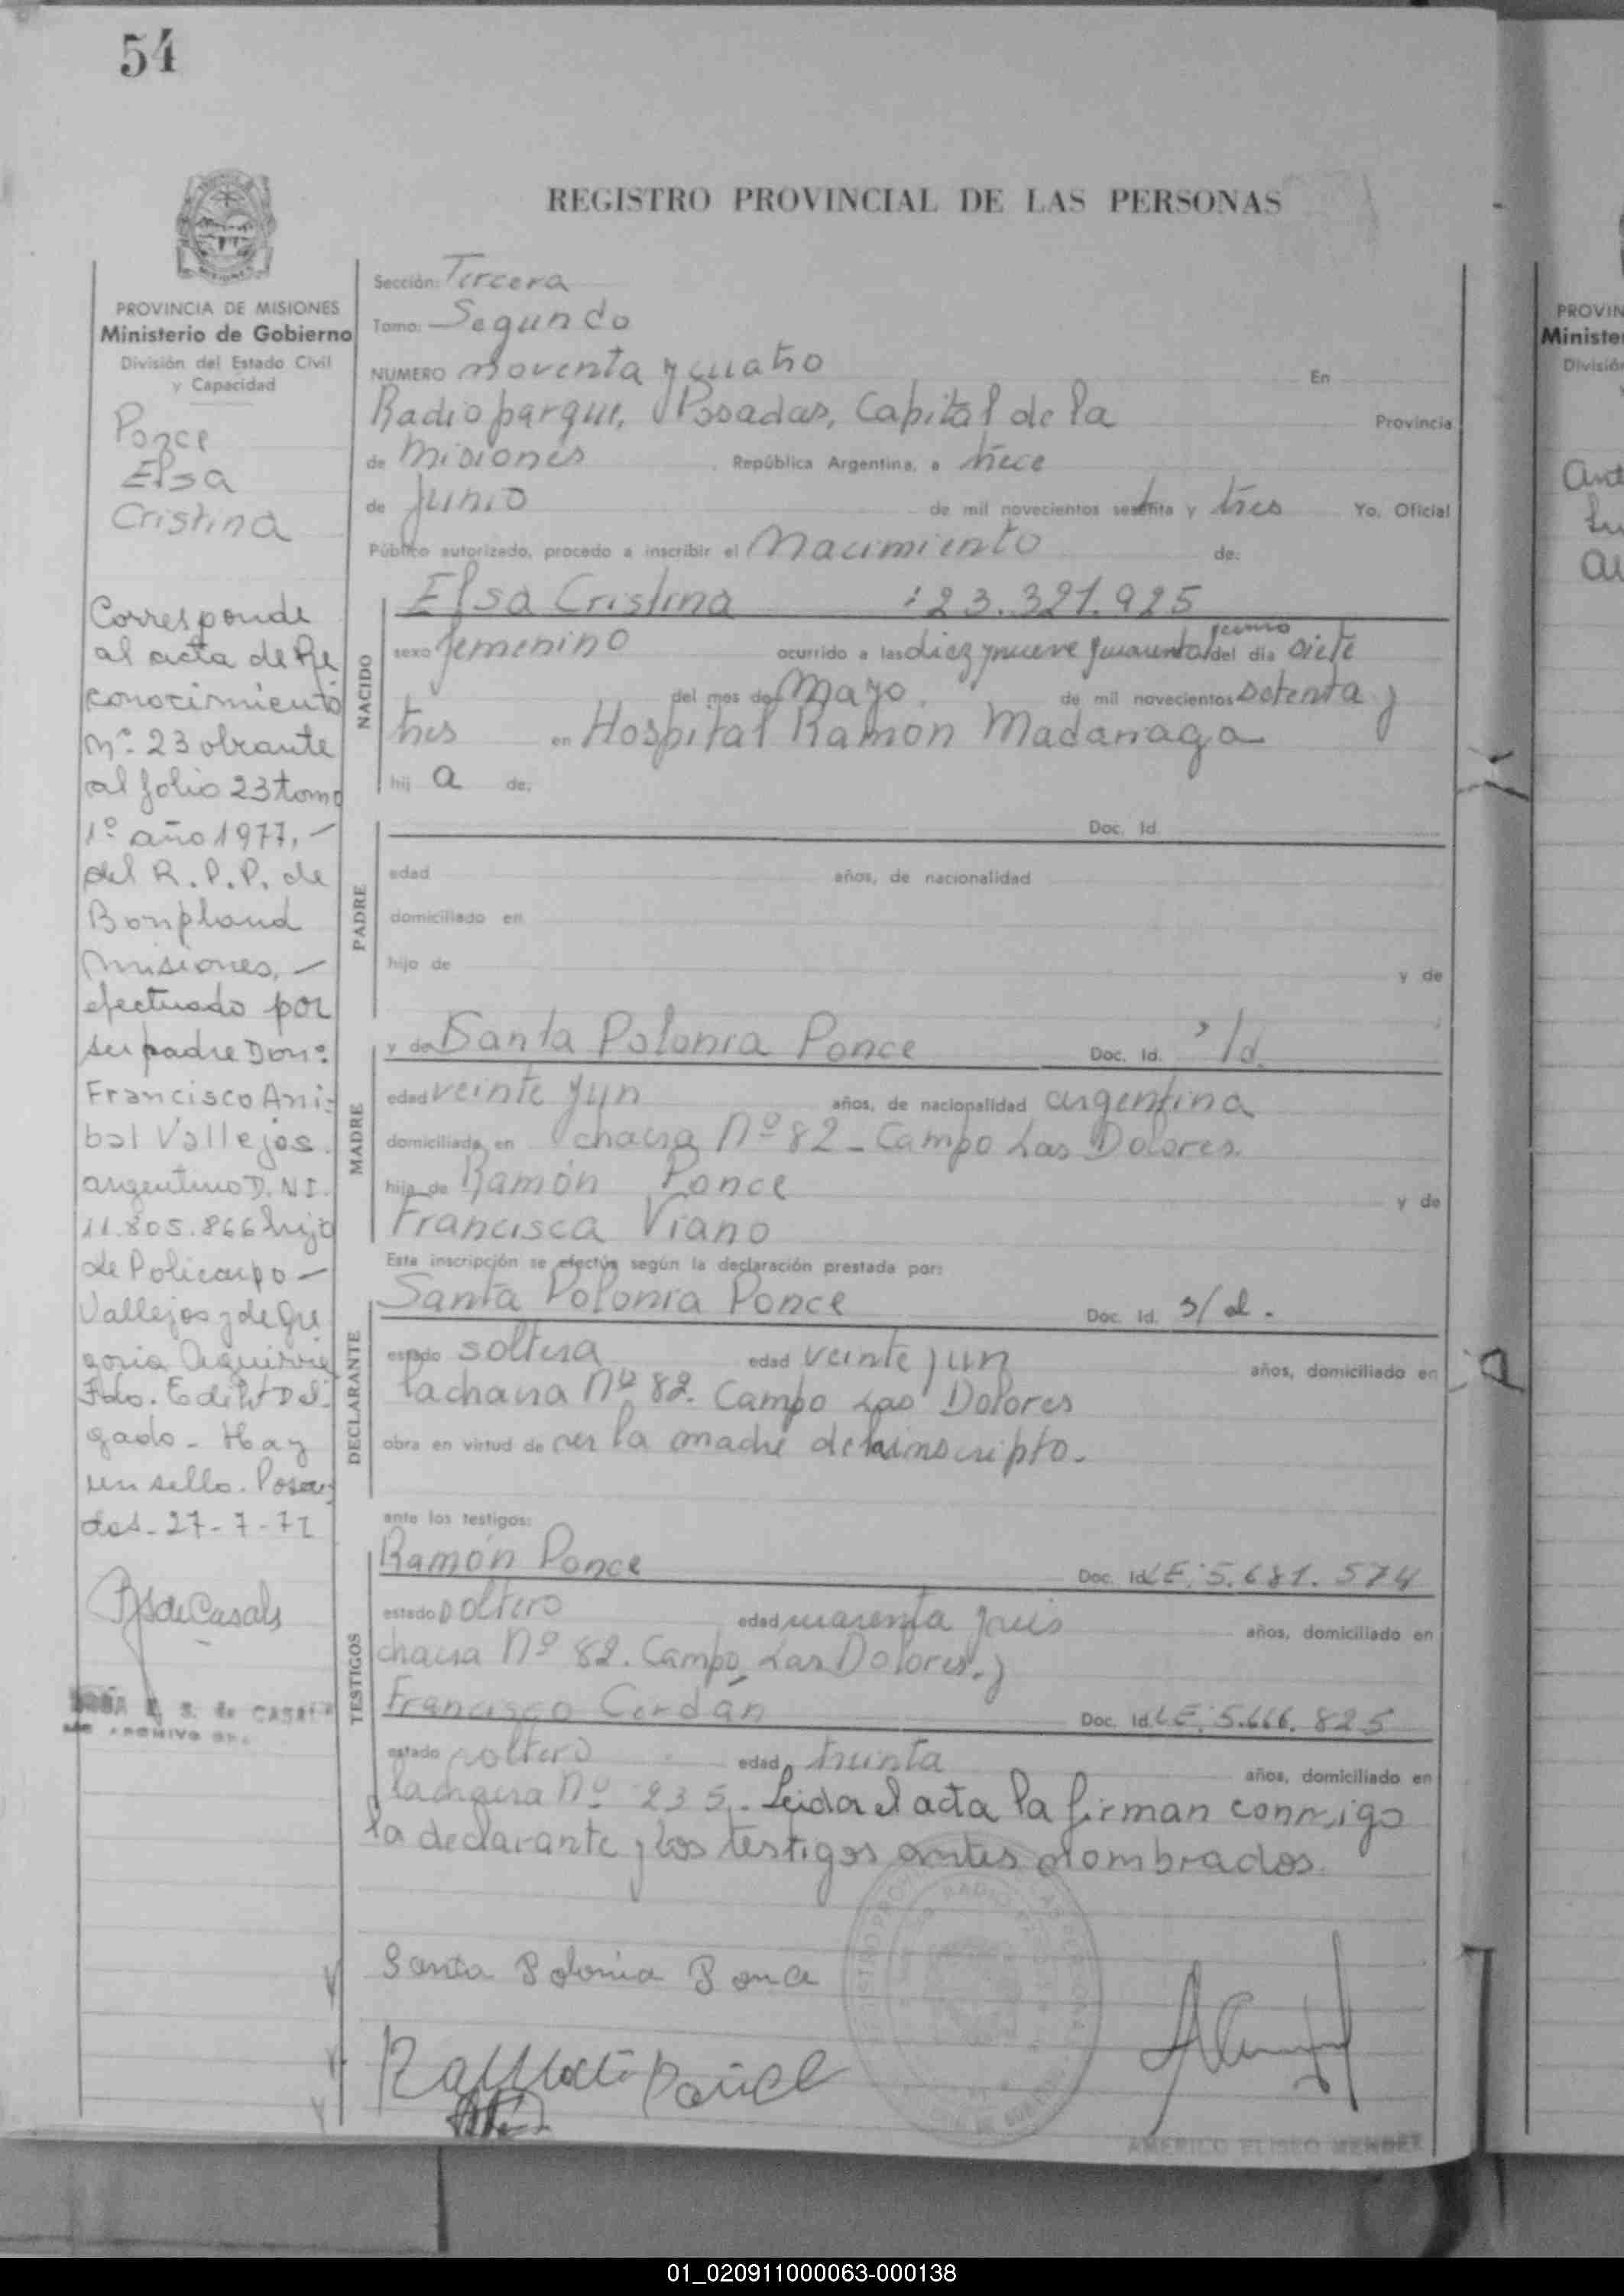 54
REGISTRO PROVINCIAL DE LAS PERSONAS
PROVINCIA DE MISIONES
Ministerio de Gobierno
División del Estado Civil
y Capacidad
Ponce
Elsa
Cristina
Corresponde
al acta de Re
conocimiento
Nº 23 obrante
al folio 23 tomo
1º año 1977.-
del R.P.P. de
Bonpland
Misiones.-
efectuado por
su padre Don:
Francisco Ani-
bal Vallejos.
argentino D.NI.
11.805.866 hijo
de Policarpo-
Vallejos y de Gre
goria Aguirre
Fdo. Edith Del-
gado- Hay
un sello. Posa-
das-27-7-77
de Casals
S. de CASALS
ARCHIVO
Sección: Tercera
Tomo: Segundo
NUMERO noventa y cuatro En
Radioparque, Posadas, Capital de la Provincia
de Misiones República Argentina, a trece
de junio de mil novecientos setenta y tres Yo, Oficial
Público autorizado, procedo a inscribir el Nacimiento de:
NACIDO
Elsa Cristina :23.321.925
sexo femenino ocurrido a las diez y nueve y cuarenta del día siete
del mes de Mayo de mil novecientos setenta y
tres en Hospital Ramon Madariaga
hij a de:
PADRE
Doc. Id.
edad años, de nacionalidad
domiciliado en
hijo de y de
MADRE
y de Santa Polonia Ponce Doc. Id. s/d.
edad veinte y un años, de nacionalidad argentina
domiciliada en chacra Nº 82 - Campo Las Dolores.
hija de Ramón Ponce y de
Francisca Viano
Esta inscripción se efectúa según la declaración prestada por:
DECLARANTE
Santa Polonia Ponce Doc. Id. s/d.
estado soltera edad veinte y un años, domiciliado en
la chacra Nº 82. Campo Las Dolores
obra en virtud de ser la madre de la inscripto.
ante los testigos:
TESTIGOS
Ramón Ponce Doc. Id. LE: 5.681.574
estado soltero edad cuarenta y seis años, domiciliado en
chacra Nº 82. Campo Las Dolores. y
Francisco Cerdán Doc. Id. LE: 5.666.825
estado soltero edad treinta años, domiciliado en
la chacra Nº 235.- Leida el acta la firman conmigo
la declarante y los testigos antes nombrados.
Santa Polonia Ponce
AMERICO ELISEO MENDEZ
PROVIN
Minister
División
01_020911000063-000138